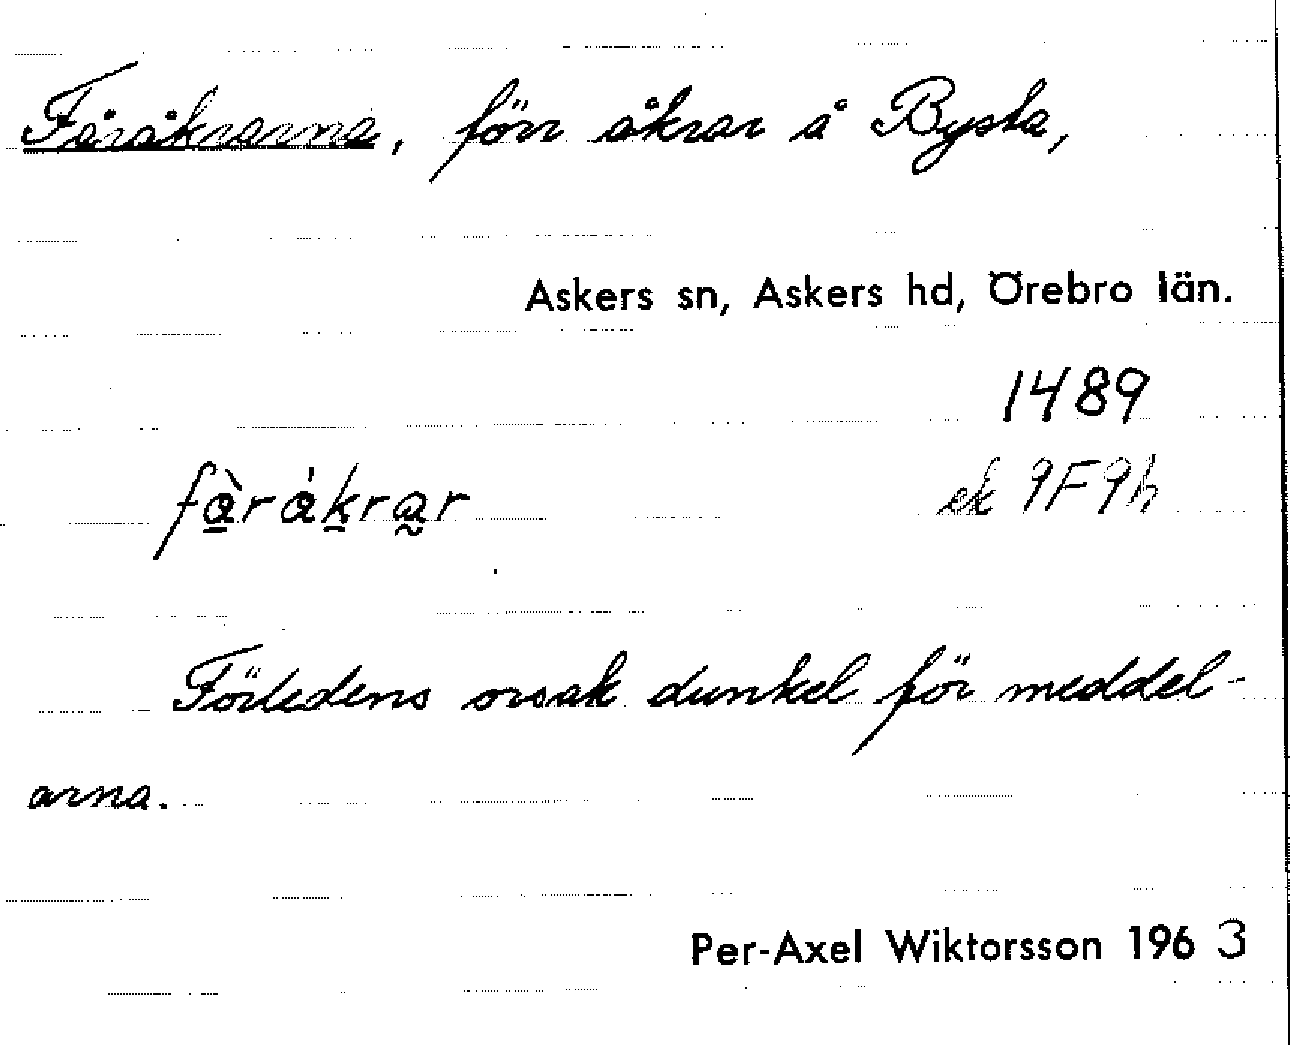 Fåråkrarna, förr åkrar å Bysta,
Askers sn, Askers hd, Örebro län.
1489
fàråkrar ek 9F9h
Förledens orsak dunkel för meddel-
arna.
Per-Axel Wiktorsson 1963